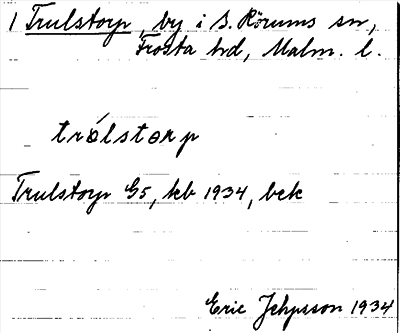 1 Trulstorp, by i S. Rörums sn,
Frosta hd, Malm. l.
trólstorp
Trulstorp G5, kb 1934, bek
Eric Jehpsson 1934